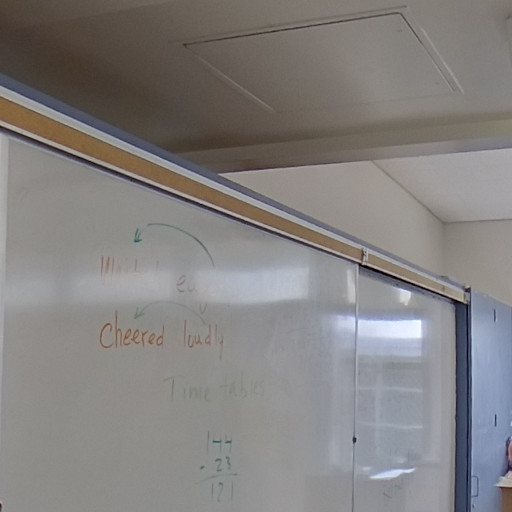 Cheered loudly
Time table
144
- 23
121